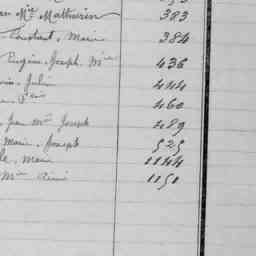 an Mie Mathurin 383
Constant, Marie 384
Eugène Joseph Mie 436
Julien 444
460
Jean Mie Joseph 489
Marie, Joseph 525
le, Marie 1144
Mie Aimé 1151